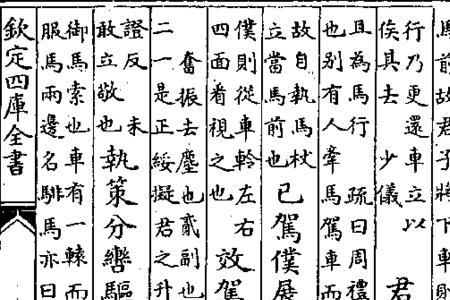 馬前故君子將下車則
行乃更還車立以
俟其去 少儀 君
且為馬行 疏曰周禮
也别有人牽馬駕車而
故自執馬杖
立當馬前也 已駕僕展
僕則從車軨左右
四面看視之也 效駕
奮振去塵也貳副也
二一是正綏擬君之升
證反 未
敢立敬也 執策分轡驅
御馬索也車有一轅而
服馬兩邊名騑馬亦曰
欽定四庫全書